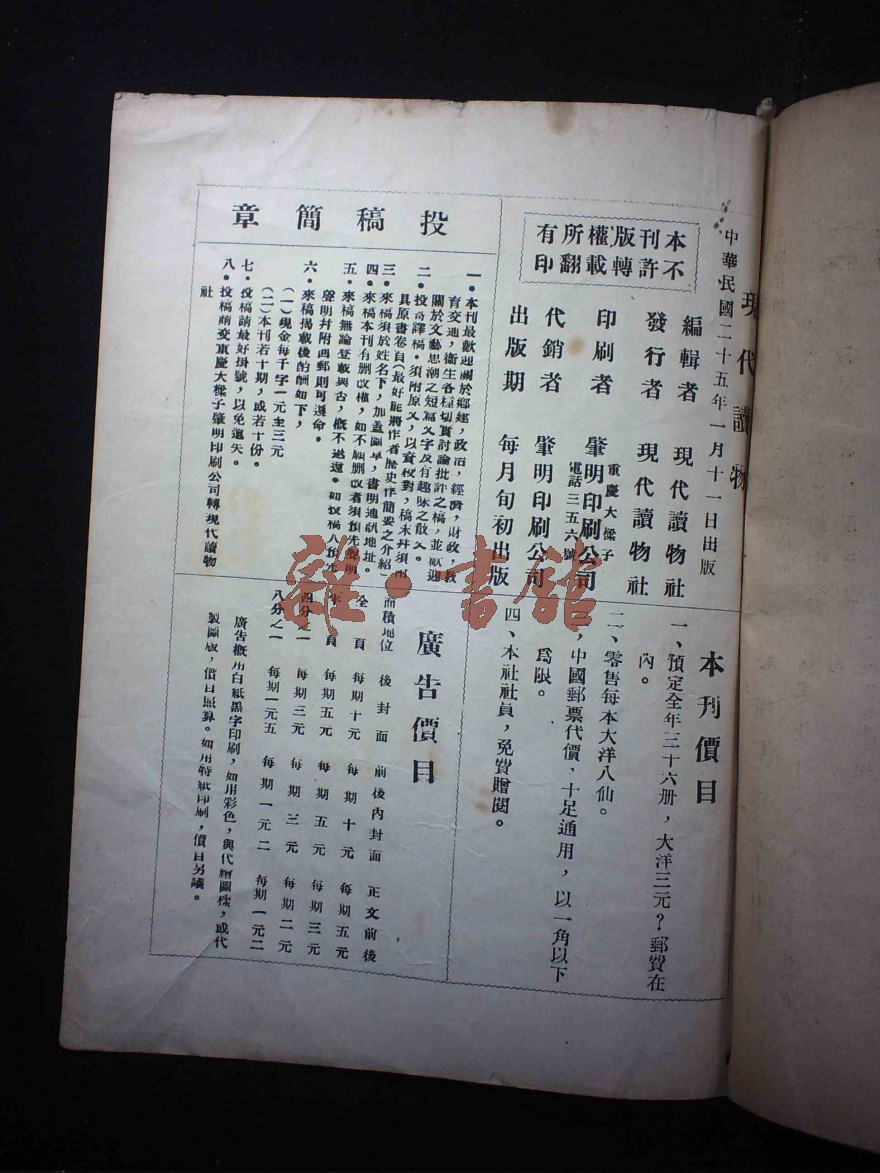 現代讀物
中華民國二十五年一月十一日出版
本刊版權所有
不許轉載翻印
編輯者 現代讀物社
發行者 現代讀物社
印刷者 肇明印刷公司
重慶大樑子
電話三五六號
代銷者 肇明印刷公司
出版期 每月旬初出版
本刊價目
一、預定全年三十六册，大洋三元？郵費在
內。
二、零售每本大洋八仙。
三，中國郵票代價、十足通用，以一角以下
爲限。
四、本社社員，免費贈閱。
投稿簡章
一・本刊最歡迎關於鄉建，政治，經濟，財政，教
育交通，衛生各種切實討論批評之稿，並歡迎
關於文藝思潮之短篇文字及有趣味之散文。
二・投寄譯稿・須附原文，以資校對，稿末幷須附
具原書卷頁（最好能將作者歷史作簡要之介紹
三・來稿須於姓名下，加蓋圖章，書明通訊地址。
四・來稿本刊有删改權，如不願删改者須預先聲明
五・來稿無論登載與否，概不退還。如投稿人預先
聲明幷附回郵則可遵命。
六・來稿揭載後酌酬如下，
（一）現金每千字一元至三元
（二）本刊若十期，或若十份。
七・投稿請最好掛號，以免遺失。
八・投稿請交重慶大樑子肇明印刷公司轉現代讀物
社
廣告價目
面積地位 後封面 前後內封面 正文前後
全頁 每期十元 每期十元 每期五元
半頁 每期五元 每期五元 每期三元
四分之一 每期三元 每期三元 每期二元
八分之一 每期一元五 每期一元二 每期一元二
廣告概用白紙黑字印刷，如用彩色，與代繪圖樣，或代
製圖版，價目照算。如用特紙印刷，價目另議。
雜・書館